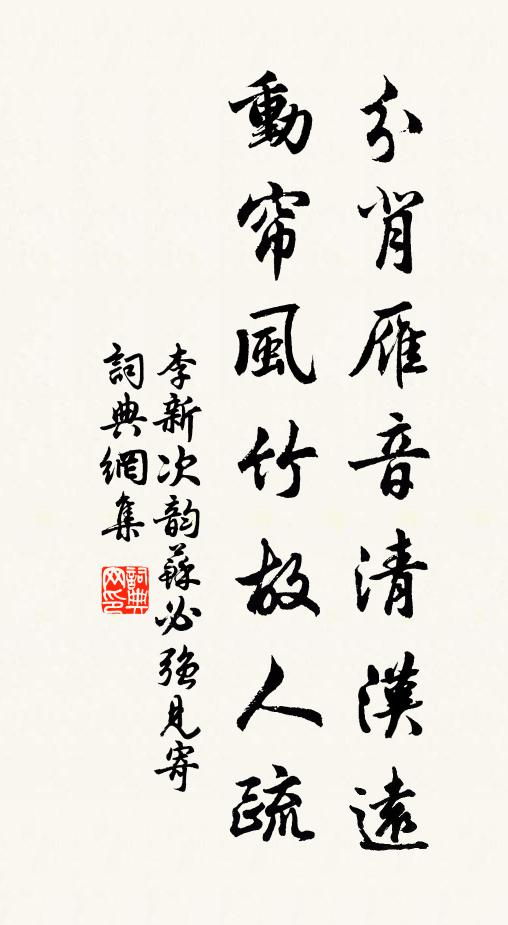 分背雁音清漢遠
動帘風竹故人疏
李新次韵蘇必強見寄
詞典網集
詞典网印